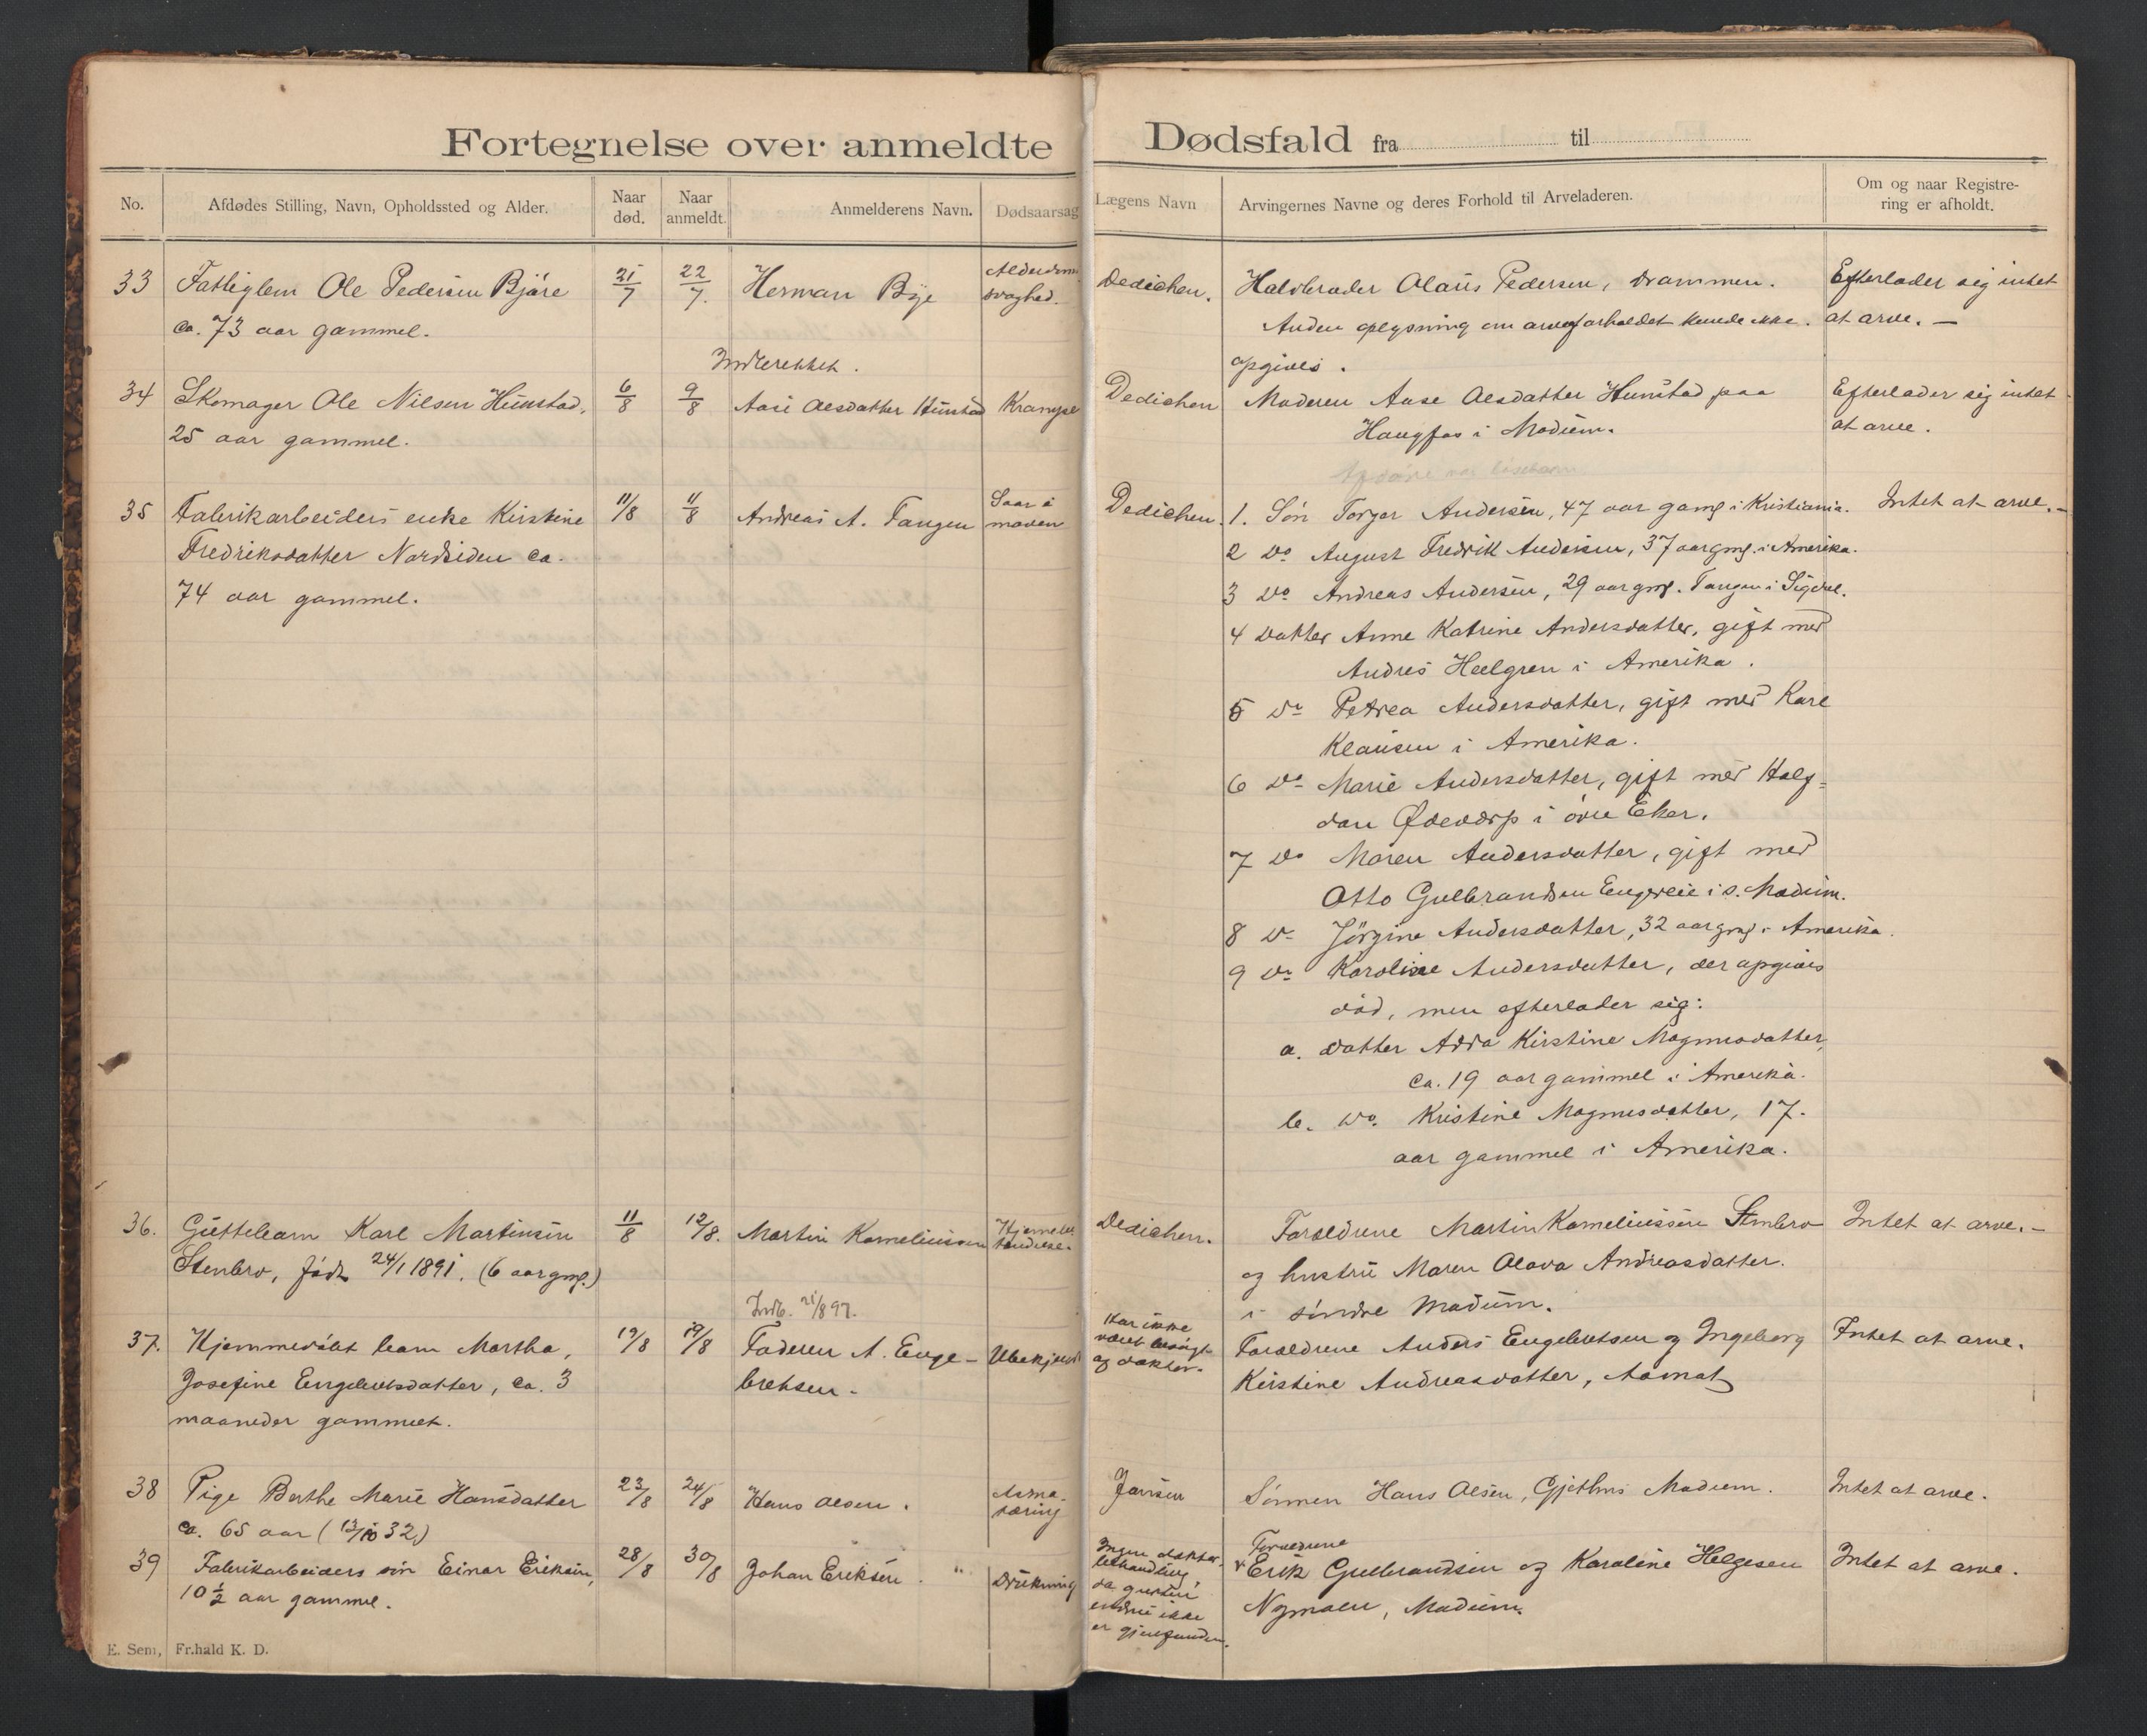 Fortegnelse over anmeldte Dødsfald fra til
No.
Afdødes Stilling, Navn, Opholdssted og Alder.
Naar død.
Naar anmeldt.
Anmelderens Navn.
Dødsaarsag
Lægens Navn
Arvingernes Navne og deres Forhold til Arveladeren.
Om og naar Registrering er afholdt.
33 Fattiglem Ole Pedersen Bjøre
ca. 73 aar gammel.
21/7 22/7. Herman Bye
svaghed.
Dedichen.
Halvbroder Olaus Pedersen, Drammen.
Anden oplysning om arveforholdet kunde ikke
opgives.
Efterlader sig intet
at arve. —
Indberettet.
34 Skomager Ole Nilsen Hunstad,
25 aar gammel.
6/8 9/8 Aase Olsdatter Hunstad Krampe
Dedichen
Moderen Aase Olsdatter Hunstad paa
Haugfos i Modum.
Efterlader sig intet
at arve.
35 Fabrikarbeiders enke Kirstine
Fredriksdatter Nordsiden ca.
74 aar gammel.
11/8 11/8 Andreas A. Tangen
Saar i
maven
Dedichen.
1. Søn Torger Andersen, 47 aar gaml i Kristiania.
2 Do August Fredrik Andersen, 37 aar gml. i Amerika.
3 Do Andreas Andersen, 29 aar gml. Tangen i Sigdal.
4 Datter Anne Katrine Andersdatter, gift med
Andres Helgren i Amerika.
5 Do Petrea Andersdatter, gift med Karl
Klausen i Amerika.
6 Do Marie Andersdatter, gift med Half-
dan i øvre Eker.
7 Do Maren Andersdatter, gift med
Otto Gulbrandsen Engereie i s. Modum.
8 Do Jørgine Andersdatter, 32 aar gml i Amerika.
9 Do Karoline Andersdatter, der opgives
død, men efterlader sig:
a. Datter Adda Kirstine Magnusdatter,
ca. 19 aar gammel i Amerika.
b. Do. Kristine Magnusdatter, 17.
aar gammel i Amerika.
Intet at arve. —
36. Guttebarn Karl Martinsen
Stenbro, født 24/1 1891. (6 aar gml.)
11/8 12/8. Martin Korneliussen
Dedichen.
Forældrene Martin Korneliussen Stenbro
og hustru Maren Olava Andreasdatter.
i søndre Modum.
Intet at arve. —
Indb. 21/8 97.
37. Hjemmedøbt barn Martha,
Josefine Engebretsdatter, ca. 3
maaneder gammelt.
19/8 19/8 Faderen A. Enge-
bretsen -
Ubekjendt
Har ikke
været besøgt
af doktor.
Forældrene Anders Engebretsen og Ingeborg
Kirstine Andreasdatter, Aamot
Intet at arve.
38 Pige Berthe Marie Hansdatter
ca. 65 aar (13/10 32)
23/8 24/8 Hans Olsen.
Jansen
Sønnen Hans Olsen, Gjethus Modum.
Intet at arve.
39 Fabrikarbeiders søn Einar Eriksen,
10 1/2 aar gammel.
28/8 30/8 Johan Eriksen. " Drukning
Ingen doktor-
behandling
da
endnu ikke
er gjenfunden.
Forældrene
Erik Gulbrandsen og Karoline Helgesen
Nymoen, Modum.
Intet at arve.
E. Sem, Fr.hald K. D.